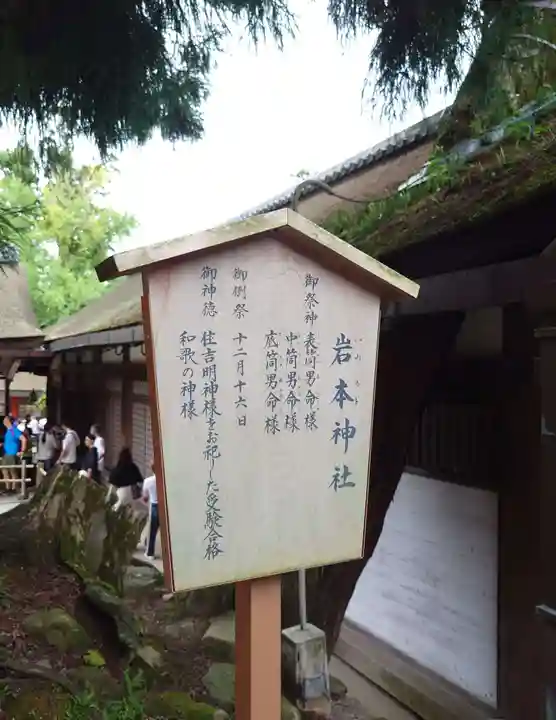 岩本神社
御祭神 表筒男命様
中筒男命様
底筒男命様
御例祭 十二月十六日
御神徳 住吉明神様をお祀りした受験合格
和歌の神様